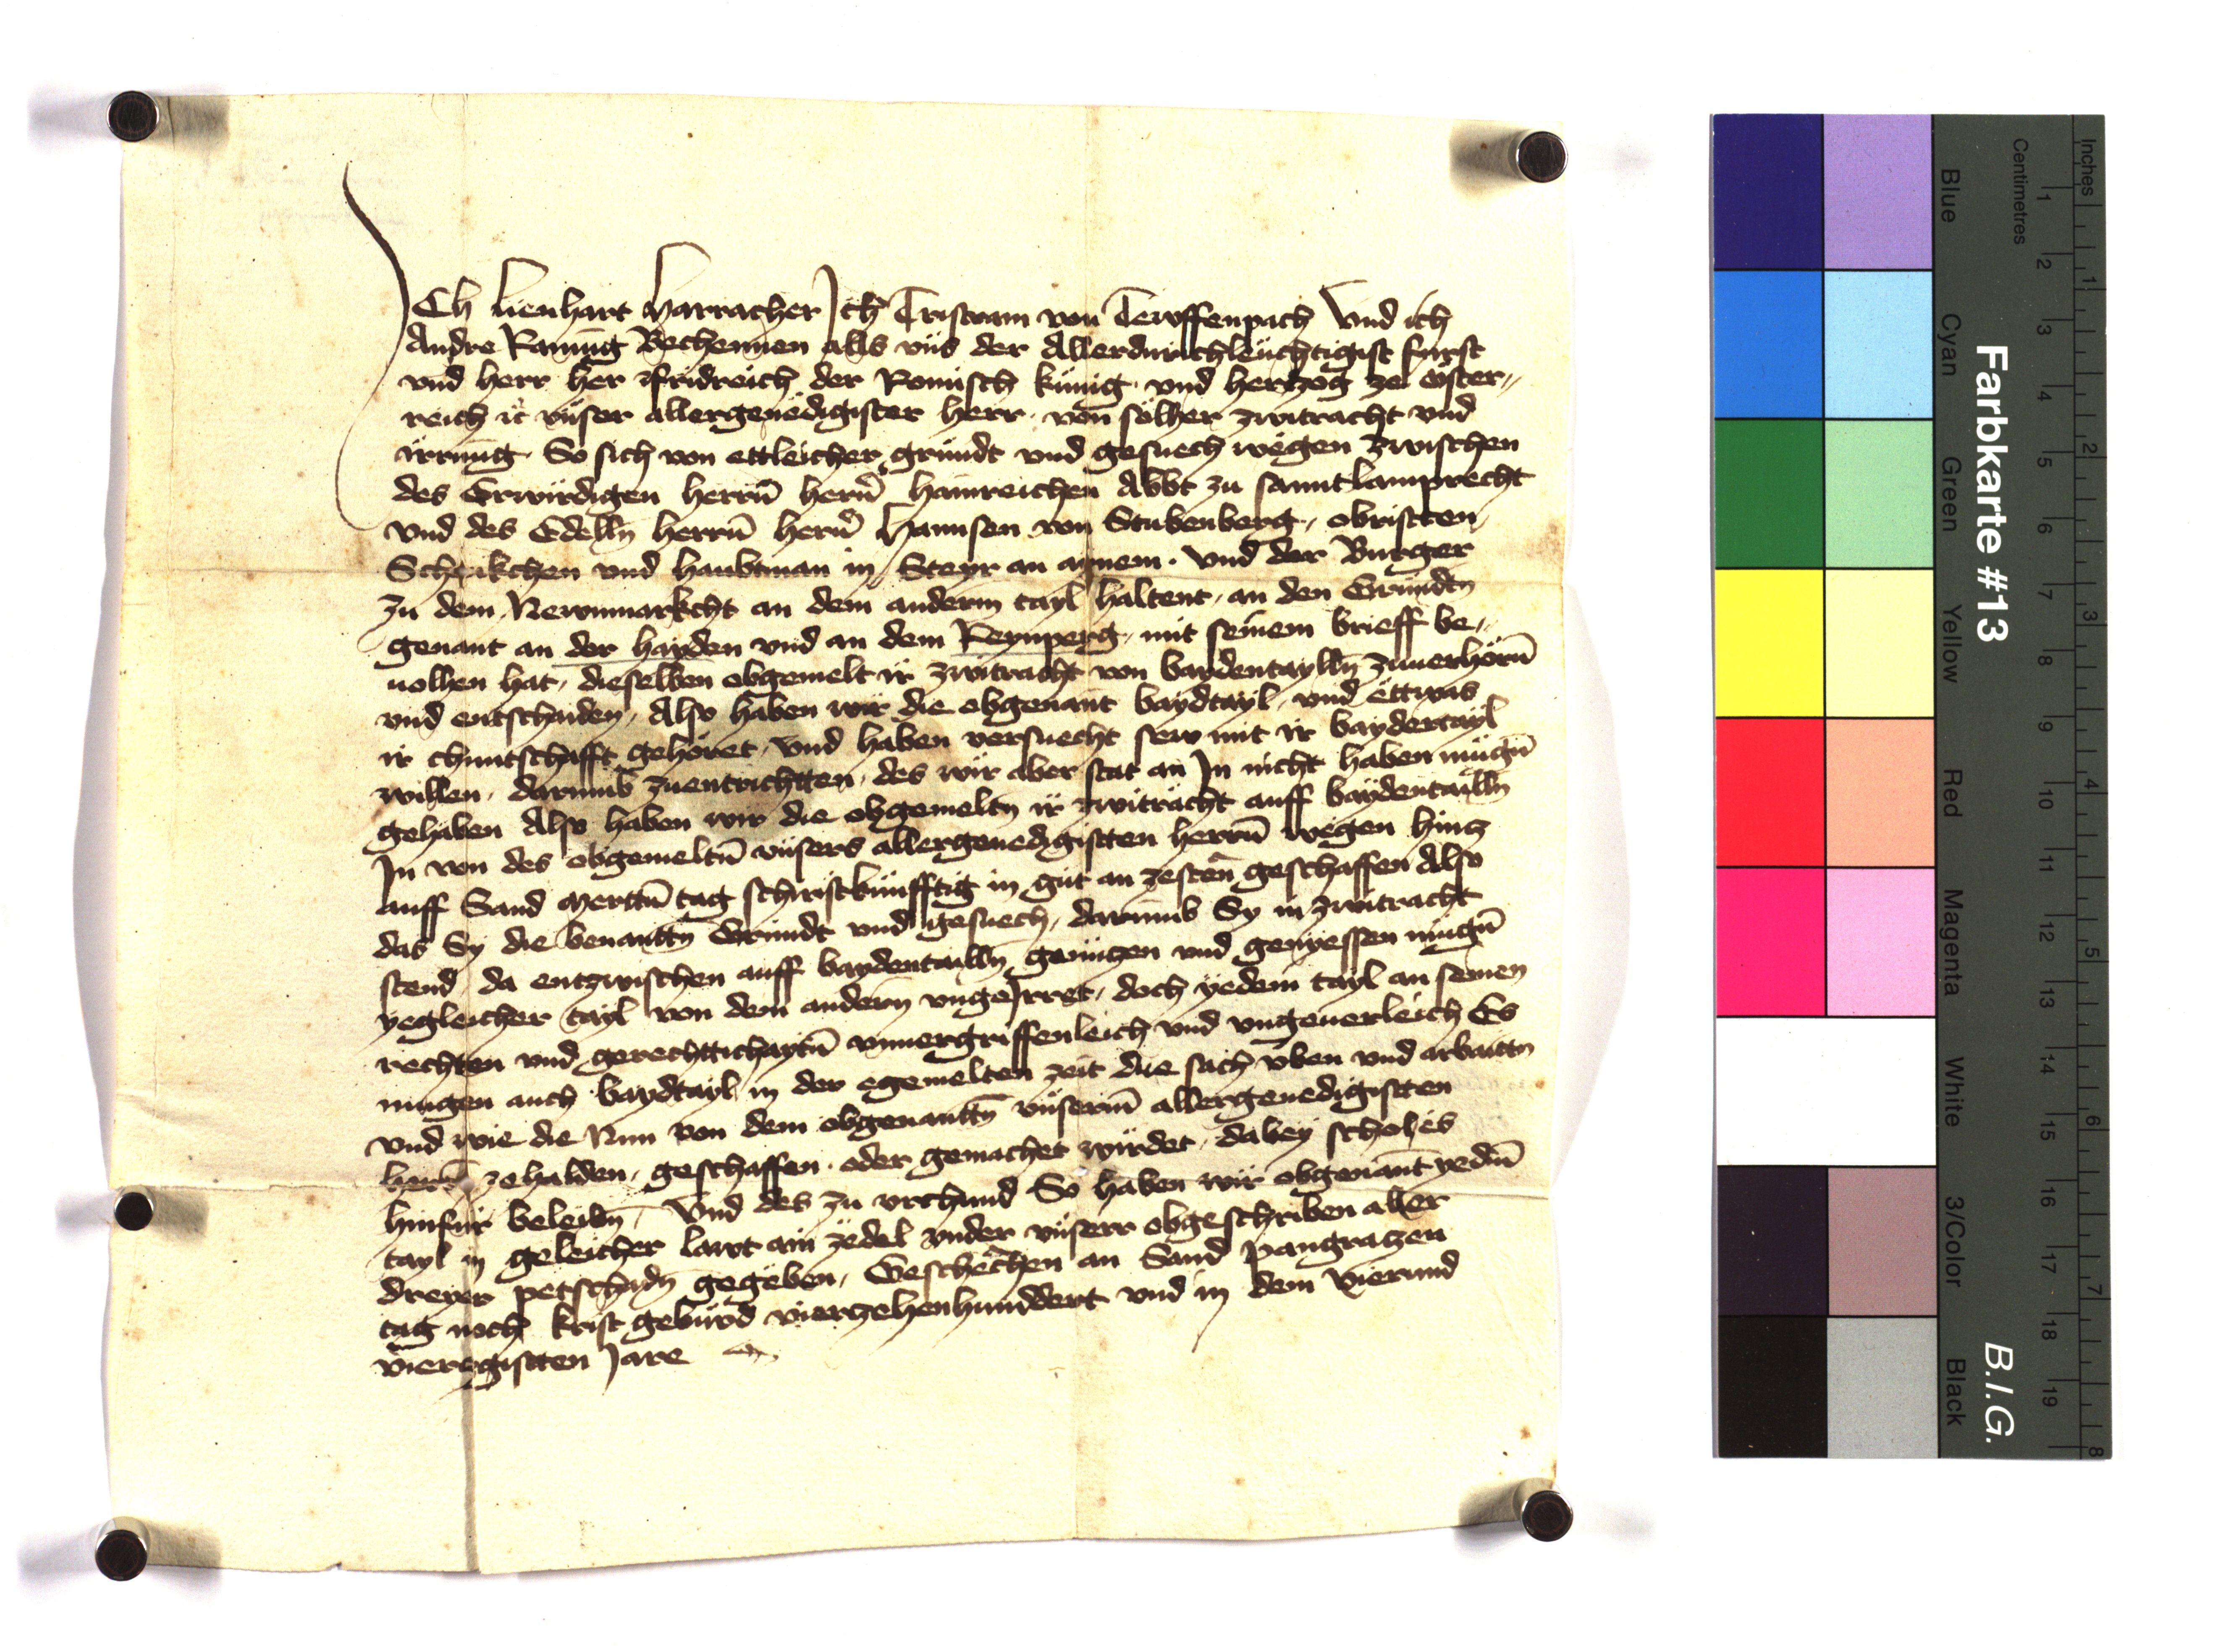 ICh Lienhart Harracher Ich Tristram von Tewffenpach Vnd ich
Andre Raming Bechennen alls vns der Allerdurichleuchtigist furst
vnd herr her Fridreich der Romisch kunig vnd hertzog ze Oster-
reich etc vnser allergenedigister herr von solher zwitracht vnd
irrung So sich von ettleicher grundt vnd gesuech wegen zwischen
des Erwirdigen herrn hern Hainreichen Abbt zu sannt Lamprecht
vnd des Edelln herrn hern Hannsen von Stubenberg obristten
Schenkchen vnd haubtman in Steyr an aynem vnd der Burger
zu dem Newnmarkcht an dem anderm tayl haltent an den Grundtn
genant an der hayden vnd an dem Reynperg mit seinem brieff be-
uolhen hat dieselben obgemelt ir zwitracht von baydentaylln zuuerhorn
vnd entschaiden Also haben wir die obgenant baydtayl vnd ettwas
ir chuntschafft gehoret vnd haben versuecht sew mit ir baydertayl
willen darumb zuentrichtten des wir aber stat an In nicht haben mugn
gehaben Also haben wir die obgemeltn ir zwitracht auff baydentailln
In von des obgemeltn vnsers allergenedigistten herrn wegen hintz
auff Sand Merttn tag schiristkunfftig in gut an zesten geschaffen Also
das Sy die benanttn Grundt vnd gesuech darumb Sy in zwitracht
stend da entzwischen auff baydentailln genuczen vnd genyessen mugn
yegleicher tayl von dem andern vngeIrret doch yedem tayl an seinen
rechten vnd gerechttichaytn vnuergriffenleich vnd vngeuerleich Es
mugen auch baydtayl in der egemelten zeit die sach vben vnd arbaittn
vnd wie die Nun von dem obgenanttn vnserm allergenedigistten
herrn zehalden geschaffen oder gemachet wirdet dabey schol es
hinfur beleibn Vnd des zu vrchund So haben wir obgenant yedm
tayl in geleicher lawt ain zedel vnder vnserr obgeschriben aller
dreyer petschadn gegeben Geschechen an Sand Pangraczen
tag noch krist geburd vierzehenhunddert vnd in dem Vierund
vierczgistten Jare
Farbkarte #13
B.I.G.
Inches
Centimetres
1 2 3 4 5 6 7 8 9 10 11 12 13 14 15 16 17 18 19
1 2 3 4 5 6 7 8
Blue
Cyan
Green
Yellow
Red
Magenta
White
3/Color
Black